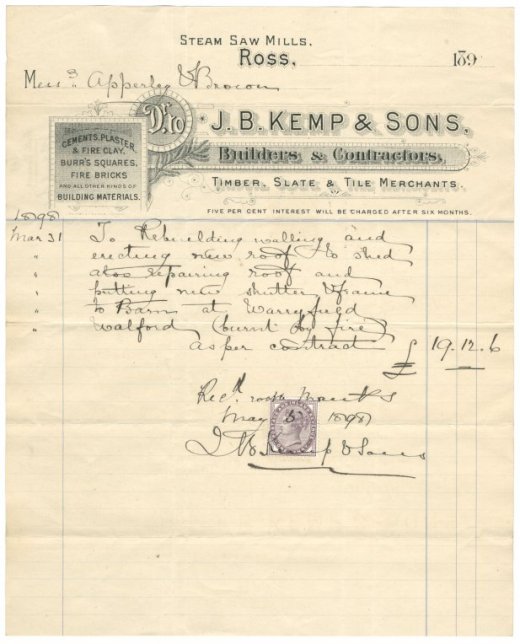 STEAM SAW MILLS.
ROSS, 189
Messrs Apperley & Brown
Dr. to J. B. KEMP & SONS,
CEMENTS, PLASTER,
& FIRE CLAY,
BURR'S SQUARES,
FIRE BRICKS
AND ALL OTHER KINDS OF
BUILDING MATERIALS.
Builders & Contractors,
TIMBER, SLATE & TILE MERCHANTS.
FIVE PER CENT INTEREST WILL BE CHARGED AFTER SIX MONTHS.
1898
Mar 31 To Rebuilding walling and
" erecting new roof to shed
" also repairing roof and
" putting new shutter & frame
" to Barn at Warryfield
" Walford (burnt by fire)
as per contract £ 19.12.6
Recd. with thanks
May 1898
J B Kemp & Sons